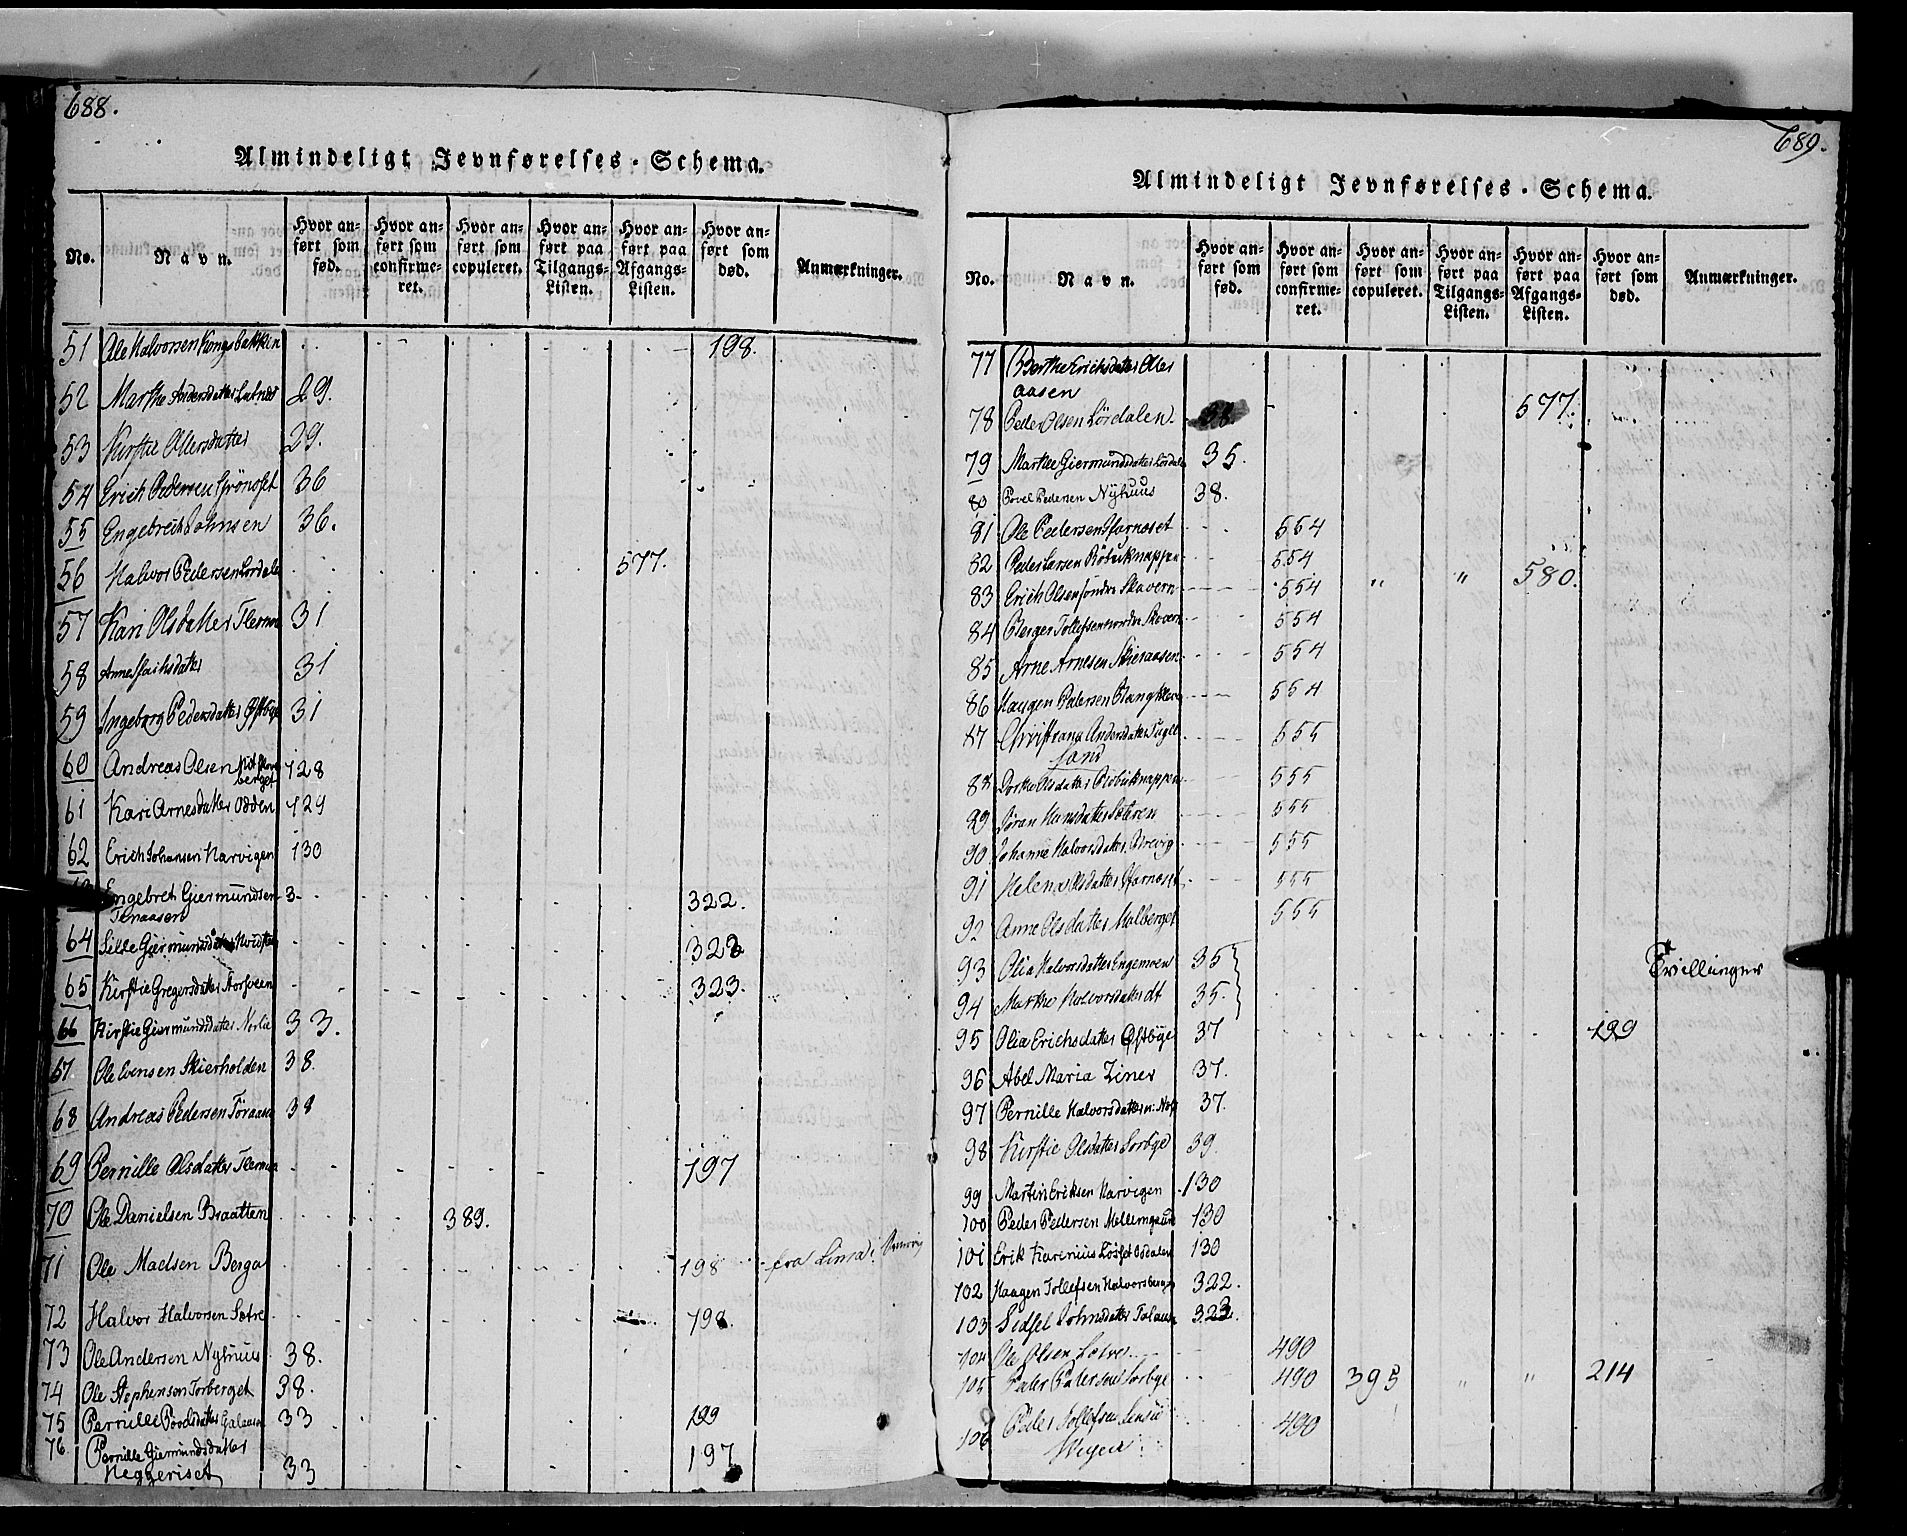 688.
Almindeligt Jevnførelses-Schema.
No. Navn. Hvor anført som fød. Hvor anført som confirmeret. Hvor anført som copuleret. Hvor anført paa Tilgangs-Listen. Hvor anført paa Afgangs-Listen. Hvor anført som død. Anmærkninger.
51 Ole Halvorsen Kongsbakken 198.
52 Marthe Andersdatter 29.
53 Kirstie Olersdatter 29.
54 Erich Pedersen Grönoset 36
55 Engebreth Johnsen 36.
56 Halvor Pedersen Lørdale 577.
57 Kari Olsdatter Flermo 31
58 Anne 31
59 Ingeborg Pedersdatter Østbye 31
60 Andreas Olsen 128
berget
61 Kari Arnesdatter Odden 129
62 Erich Johansen Narvigen 130
Engebret Giermundsen 3 322.
64 Giermundsdatter 322
65 Kirstie Gregersdatter Norsveen 323.
66 Kirstie Giermundsdatter Norlie 33.
67. Ole Evensen Skierholden 38.
68 Andreas Pedersen Töraasen 38
69 Pernille Olsdatter Flermo 197
70 Ole Danielsen Braatten 389.
71 Ole Madsen Berga 198 fra Lima i
72 Halvor Halvorsen Sætre 198.
73 Ole Andersen Nyhuus 38.
74 Ole Stephensen Torberget 38.
75 Pernille Povelsdatter Galaasen 33 199
76 Pernille Giermundsdatter
Heggeriset 33 197
689.
Almindeligt Jevnførelses-Schema.
No. Navn. Hvor anført som fød. Hvor anført som confirmeret. Hvor anført som copuleret. Hvor anført paa Tilgangs-Listen. Hvor anført paa Afgangs-Listen. Hvor anført som død. Anmærkninger.
77 Berthe Erichsdatter
aasen
78 Peder Olsen Lördalen. 38. 577.
79 Marthe Giermundsdatter Lørdalen 35.
80 Povel Pedersen Nyhuus 38.
81 Ole Pedersen Jarnæset 554
82 Peder Larsen Röbækknappen 554
83 Erich Olsen söndre Skavern 554 " " 580.
84 Berger Tollefsen nordre Skavern 554
85 Arne Arnesen Skieraasen 554
86 Haagen Pedersen Plangkleva 554
87 Christiana Andersdatter Fugle 555
sand
88 Dorthe Olsdatter Röbækknappen 555
89 Jöran Hansdatter Sæteren 555
90 Johanne Halvorsdatter Brevig 555
91 Helena Olsdatter Jarnæset 555
92 Anne Olsdatter Malberget 555
93 Olia Halvorsdatter Engemoen 35
Tvillinger
94 Marthe Halvorsdatter dt 35.
95 Olia Erichsdatter Østbye 37 199
96 Abel Maria Ziner 37.
97 Pernille Halvorsdatter 37.
98 Kirstie Olsdatter Sorbye 39.
99 Martin Eriksen Narvigen 130
100 Peder Pedersen Mellemgaard 130
101 Erik Karinius Løset Osdalen 130
102 Haagen Tollefsen Halvorsberget 322.
103 Sidsel Johnsdatter Galaasen 323.
104 Ole Olsen Lætre 490
105 Peder Pedersen Sorbye 490 395 " " 214
106 Peder Tollefsen 490